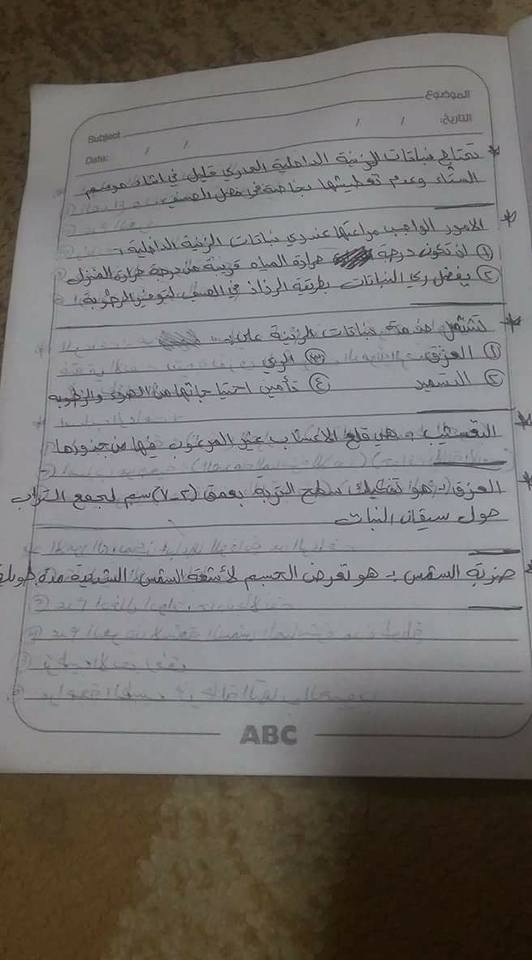 الموضوع:
Subject
التاريخ: / /
Date: / /
* تحتاج نباتات الزينة الداخلية الى ري قليل في اثناء موسم
الشتاء وعدم تعطيشها بخاصة في فصل الصيف
* الامور الواجب مراعتها عند ري نباتات الزينة الداخلية:
① ان تكون درجة حرارة المياه قريبة من درجة حرارة المنزل
② يفضل ري النباتات بطريقة الرذاذ في الصيف لتوفير الرطوبة
* تشتمل خدمة نباتات الزينة على:
① العزق ③ الري
② التسميد ④ تأمين احتياجاتها من الضوء والرطوبة
* التعشيب:- هي قلع الاعشاب غير المرغوب فيها من جذورها
* العزق:- هو تفكيك سطح التربة بعمق (٢-٧) سم لجمع التراب
حول سيقان النبات
* ضربة الشمس:- هو تعرض الجسم لأشعة الشمس مدة طويلة
ABC